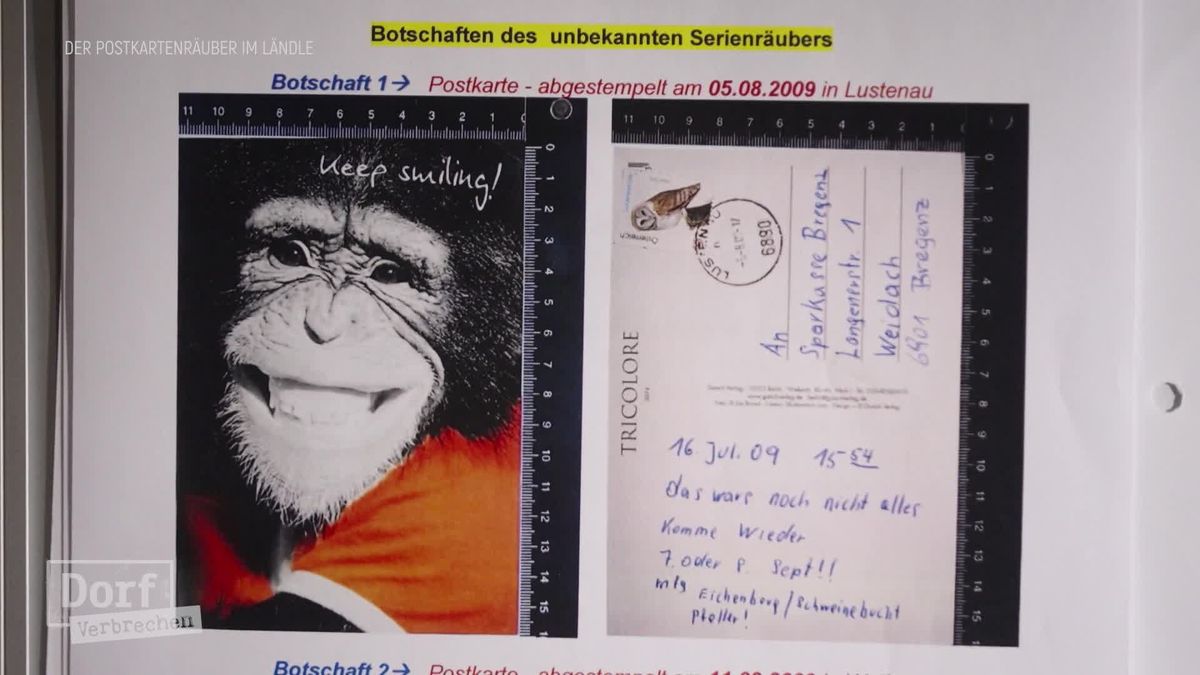 DER POSTKARTENRÄUBER IM LÄNDLE
Botschaften des unbekannten Serienräubers
Botschaft 1→ Postkarte - abgestempelt am 05.08.2009 in Lustenau
11 10 9 8 7 6 5 4 3 2 1
0 1 2 3 4 5 6 7 8 9 10 11 12 13 14 15
Keep smiling!
11 10 9 8 7 6 5 4 3 2 1
0 1 2 3 4 5 6 7 8 9 10 11 12 13 14 15
Österreich
6890
An
Sparkasse Bregenz
Langenerstr. 1
Weidach
6901 Bregenz
TRICOLORE
16. Jul. 09 15 54
das wars noch nicht alles
Komme wieder
7. oder 8. Sept!!
mfg Eichenberg/Schweinebucht
Pfoller!
Dorf
Verbrechen
Botschaft 2→ Postkarte - abgestempelt am